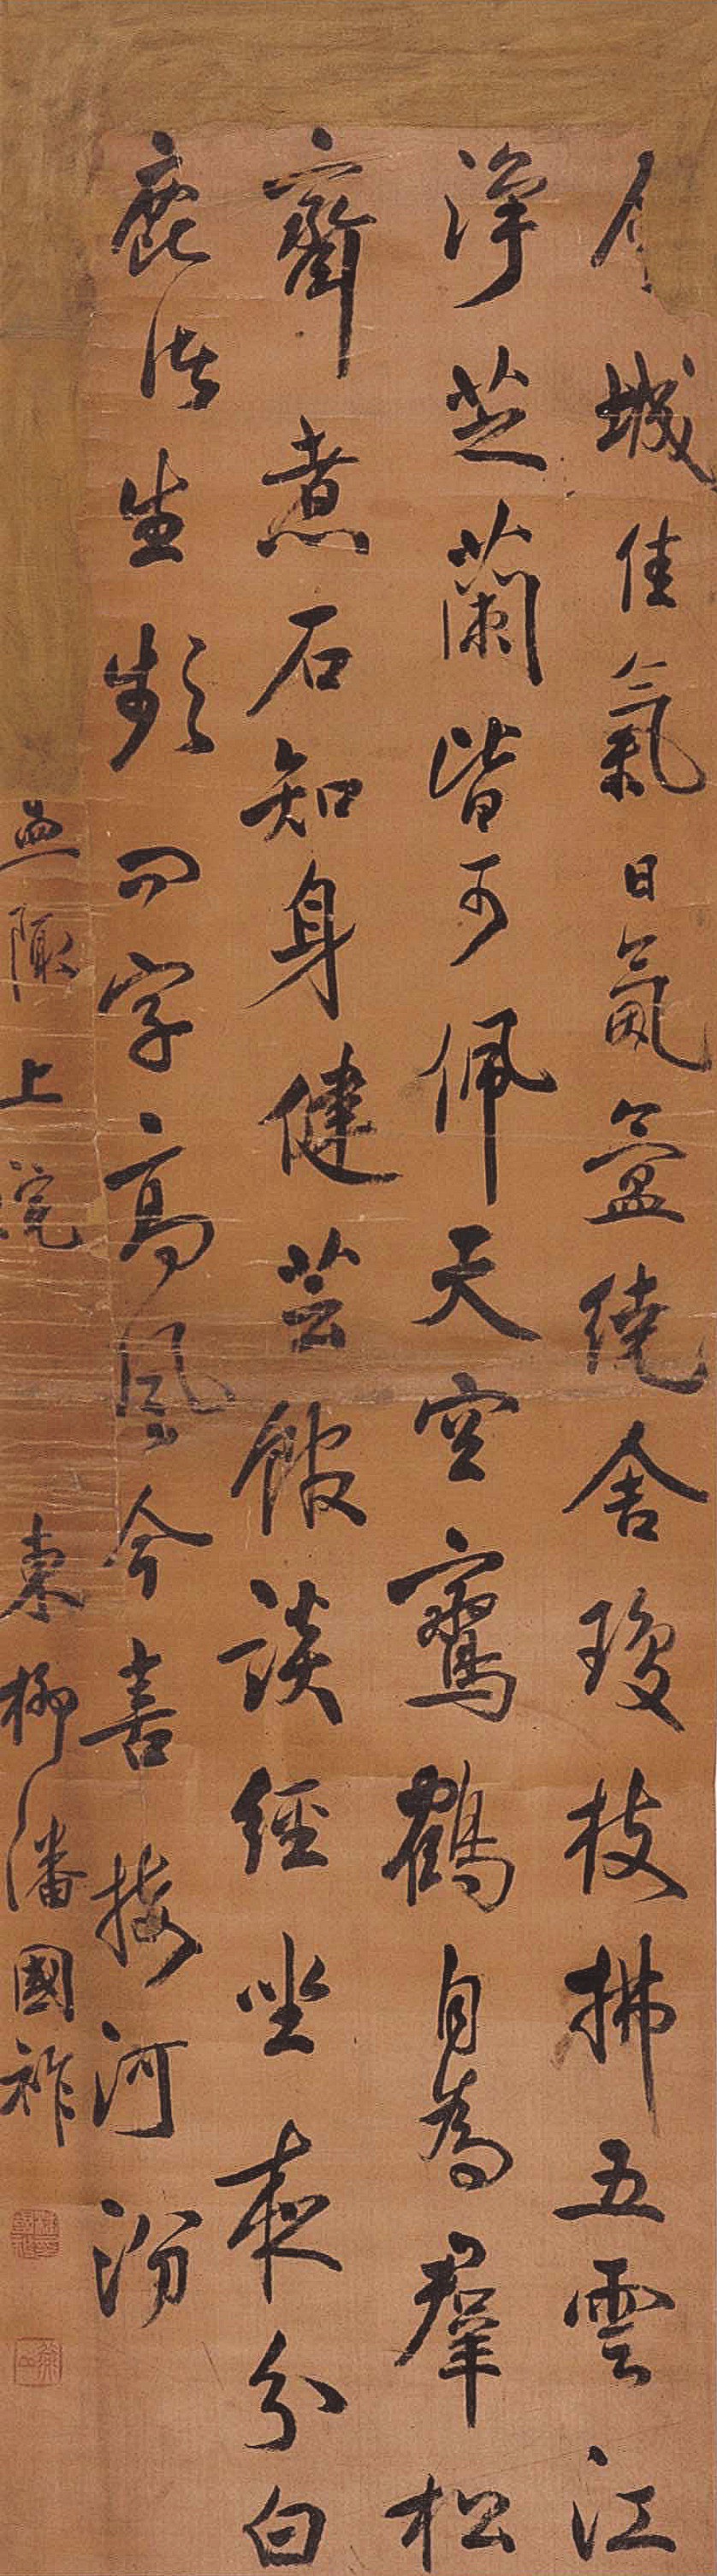 城佳氣日氤氳繞舍瓊枝拂五雲江
淨芝蘭皆可佩天空鸞鶴自為羣松
齋煮石知身健芸館談經坐夜分白
鹿諸生頻問字高風今喜接河汾
孟陬上浣 東柳潘國祚